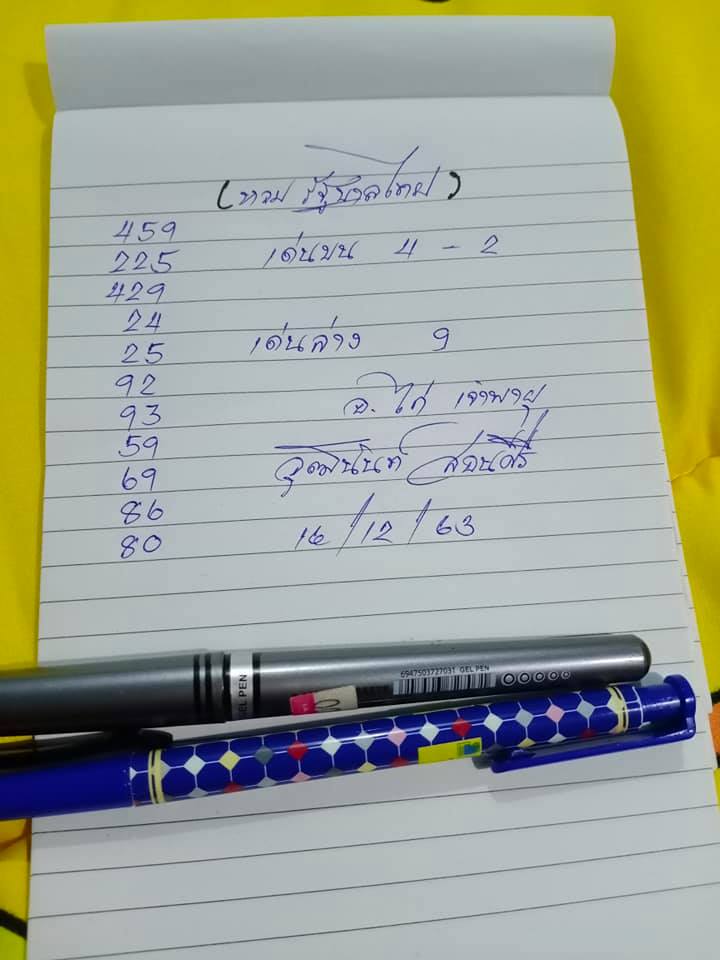 (หวย รัฐบาลไทย)
459
225 เด่นบน 4 - 2
429
24
25 เด่นล่าง 9
92
93 อ. ไก่ เจ้าพายุ
59
69
86
80 16/12/63
6947503727031 GEL PEN
GEL PEN